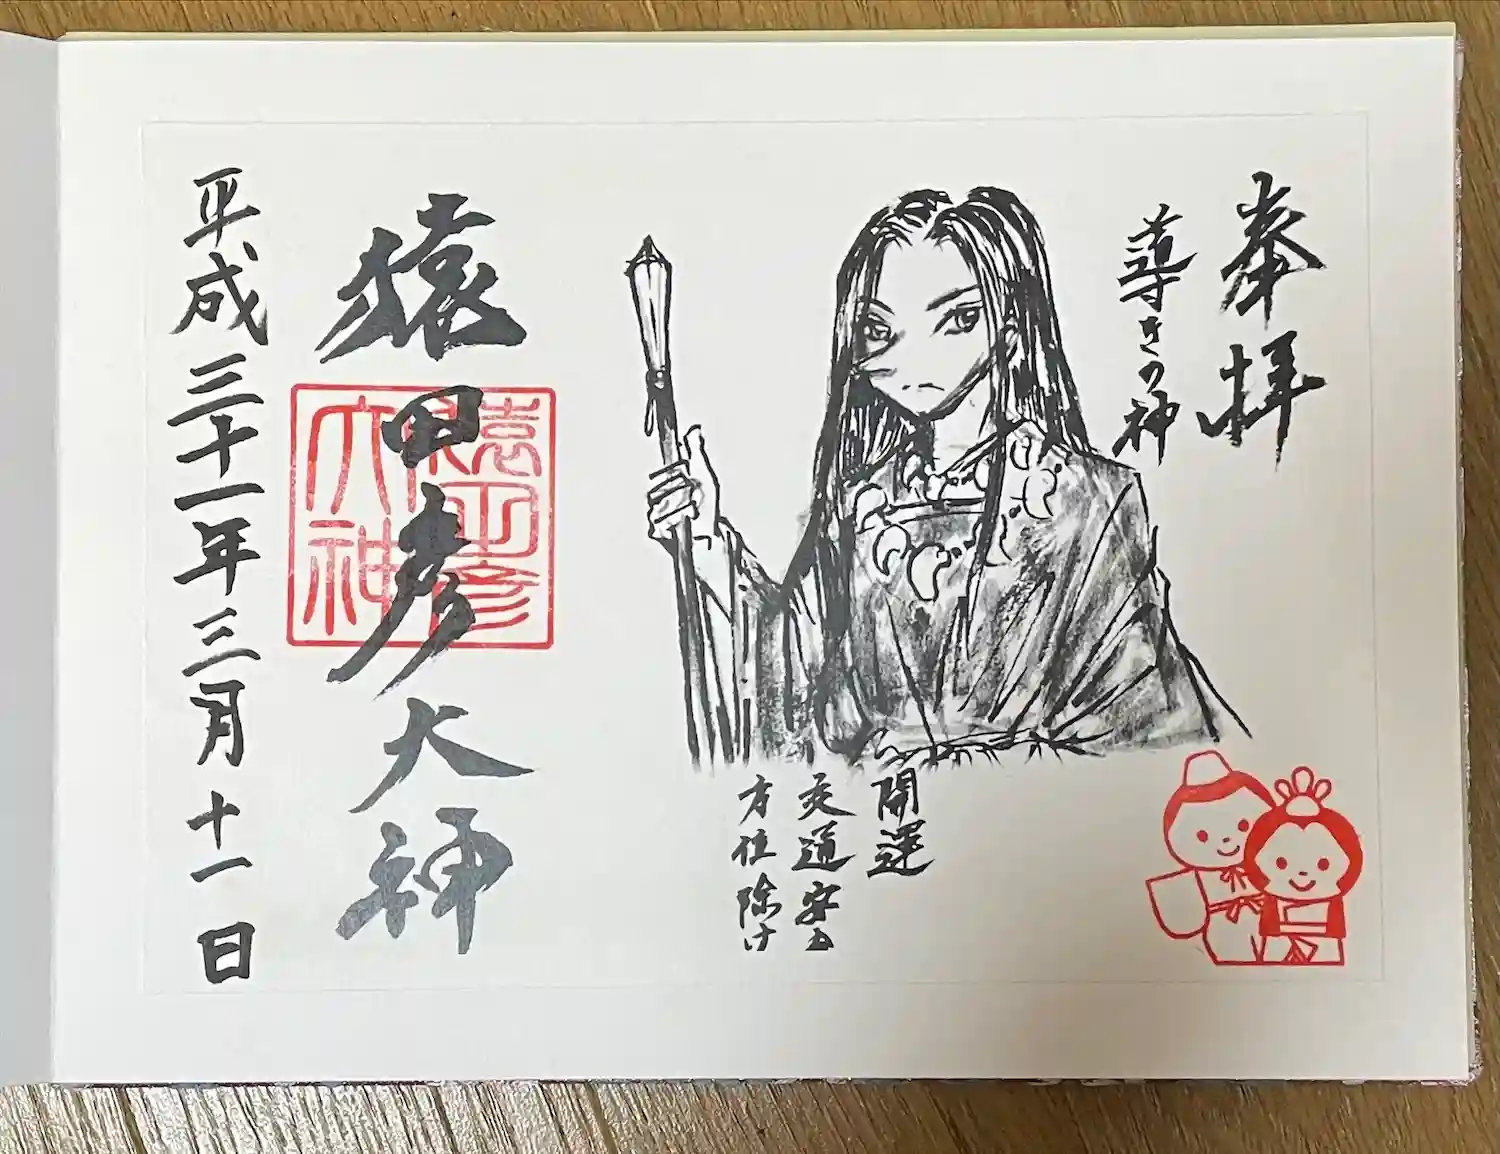 奉拝
導きの神
開運
交通安全
方位除け
猿田彦大神
猿田彦大神
平成三十一年三月十一日